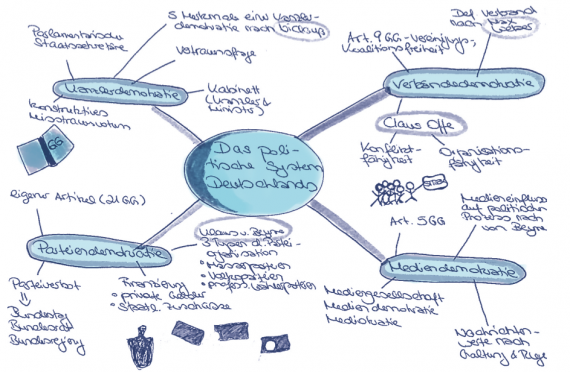 Das poli-
tische System
Deutschlands
Kanzlerdemokratie
Parlamentarische
Staatssekretäre
5 Merkmale einer Kanzler-
demokratie nach
Vertrauensfrage
Kabinett
(Kanzler &
Minister)
konstruktives
Misstrauensvotum
GG
Verbändedemokratie
Art. 9 GG - Vereinigungs-,
Koalitionsfreiheit
Def. Verband
nach Max
Weber
Claus Offe
Konflikt-
fähigkeit
Organisations-
fähigkeit
STOP
Parteiendemokratie
eigener Artikel (21 GG)
Klaus v. Beyme
3 Typen d. Partei-
organisation
• Massenparteien
• Volksparteien
• profess. Wählerparteien
Parteiverbot
Bundestag
Bundesrat
Bundesregierung
Finanzierung
• private Gelder
• Staatl. Zuschüsse
Mediendemokratie
Art. 5 GG
Medieneinfluss
auf politischen
Prozess nach
von Beyme
Mediengesellschaft
Mediendemokratie
Mediokratie
Nachrichten-
werte nach
Galtung & Ruge